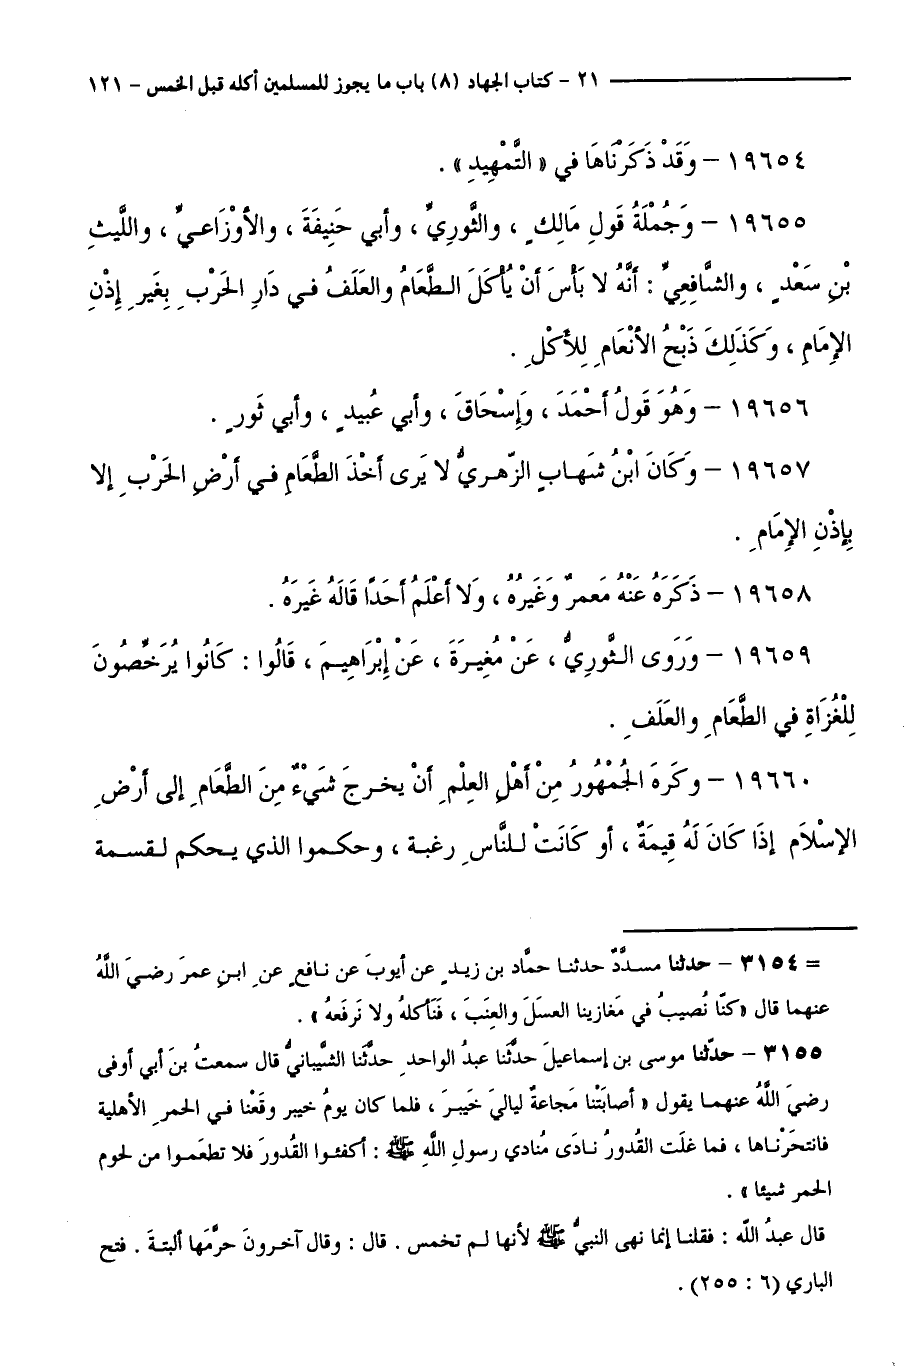 ٢١ – كتاب الجهاد (٨) باب ما يجوز للمسلمين أكله قبل الخمس – ١٢١
١٩٦٥٤ – وَقَدْ ذَكَرْنَاهَا في « التَّمْهِيدِ » .
١٩٦٥٥ – وَجُمْلَةُ قَولِ مَالِكٍ ، والثَّورِيِّ ، وأبي حَنِيفَةَ ، والأوْزَاعيِّ ، واللَّيثِ
بْنِ سَعْدٍ ، والشَّافِعِيِّ : أنَّهُ لا بَأْسَ أنْ يُأْكَلَ الطَّعَامُ والعَلَفُ في دَارِ الحَرْبِ بِغَيرِ إِذْنِ
الإِمَامِ ، وَكَذَلِكَ ذَبْحُ الأنْعَامِ لِلأَكْلِ .
١٩٦٥٦ – وَهُوَ قَولُ أحْمَدَ ، وَإِسْحَاقَ ، وأبي عُبيدٍ ، وأبي ثَورٍ .
١٩٦٥٧ – وَكَانَ ابْنُ شهَابٍ الزّهريُّ لا يَرى أخْذَ الطَّعَامِ في أرْضِ الحَرْبِ إلا
بِإِذْنِ الإِمَامِ .
١٩٦٥٨ – ذَكَرَهُ عَنْهُ مَعمرٌ وَغَيرُهُ ، وَلا أعْلَمُ أحَدًا قَالَهُ غَيرَهُ .
١٩٦٥٩ – وَرَوى الثَّورِيُّ ، عَنْ مُغِيرَةَ ، عَنْ إِبْرَاهِيمَ ، قَالُوا : كَانُوا يُرَخِّصُونَ
لِلْغُزَاةِ في الطَّعَامِ والعَلَفِ .
١٩٦٦٠ – وكَرهَ الجُمْهُورُ مِنْ أهْلِ العِلْمِ أنْ يخرجَ شَيْءٌ مِنَ الطَّعَامِ إلى أرْضِ
الإسْلَامِ إذَا كَانَ لَهُ قِيمَةٌ ، أو كَانَتْ للنَّاسِ رغبة ، وحكموا الذي يحكم لقسمة
= ٣١٥٤ – حدثنا مسدَّدٌ حدثنا حمَّاد بن زيدٍ عن أيوبَ عن نافعٍ عنِ ابنِ عمرَ رضيَ اللَّهُ
عنهما قال «كنّا نُصيبُ في مَغازينا العسَلَ والعِنَبَ ، فَنَأكلهُ ولا نَرفَعهُ» .
٣١٥٥ – حدّثنا موسى بن إسماعيلَ حدَّثَنا عبدُ الواحدِ حدَّثَنا الشَّيبانيُّ قال سمعتُ بنَ أبي أوفى
رضيَ اللَّهُ عنهما يقول « أصابَتْنا مَجاعةٌ لياليَ خَيبرَ ، فلما كان يومُ خيبر وقَعْنا في الحمرِ الأهلية
فانتحَرْناها ، فما غلَت القُدورُ نادَى مُنادي رسولِ اللَّهِ ﷺ : أكفئوا القُدورَ فلا تطعَموا من لحوم
الحمر شيئا » .
قال عبدُ اللّه : فقلنا إنما نهى النبيُّ ﷺ لأنها لم تخمس . قال : وقال آخرونَ حرَّمَها ألبتةَ . فتح
الباري (٦ : ٢٥٥) .